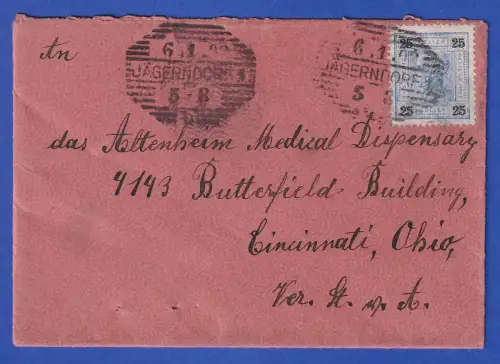 An
6.1.02
JÄGERNDORF
5-8
6.1.
JÄGERNDORF
5
25 25
25 25
das Altenheim Medical Dispensary
4143 Butterfield Building,
Cincinnati, Ohio,
Ver. St. v. A.